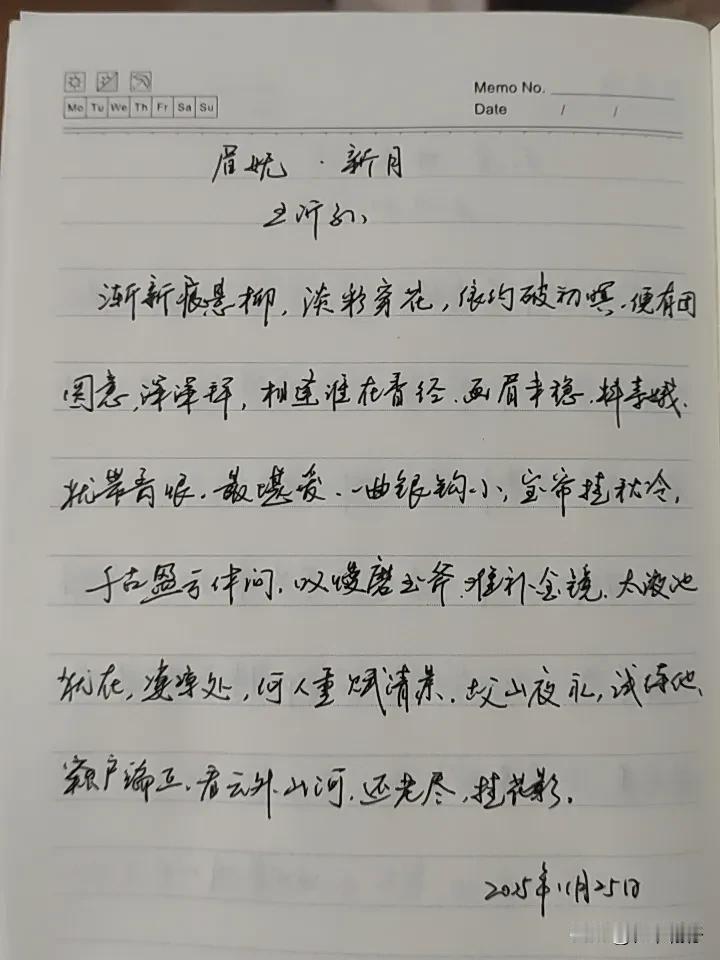 Memo No.
Mo Tu We Th Fr Sa Su
Date / /
眉妩·新月
王沂孙
渐新痕悬柳,淡彩穿花,依约破初暝.便有团
圆意,深深拜,相逢谁在香径.画眉未稳.料素娥、
犹带离恨.最堪爱.一曲银钩小,宝帘挂秋冷,
千古盈亏休问.叹慢磨玉斧.难补金镜.太液池
犹在,凄凉处,何人重赋清景.故山夜永,试待他、
窥户端正.看云外山河,还老尽,桂花影.
2025年11月25日